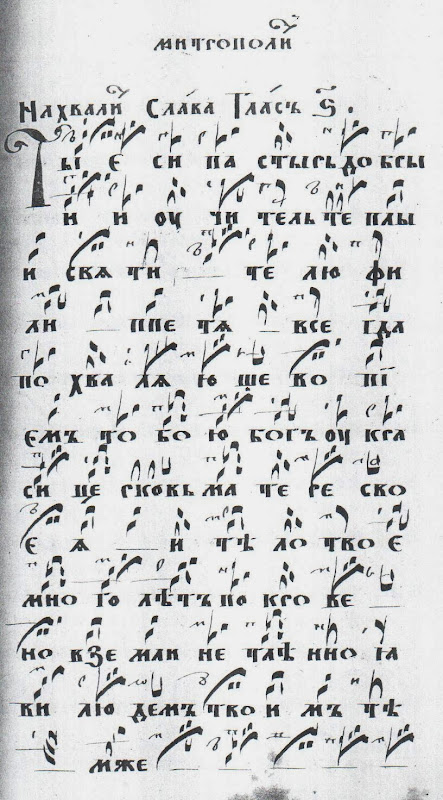 митрополи
На хвали Слава Гласъ ѕ҃ .
Ты е си па стырь до бры
и и оу чи тель те плы
и свя ти те лю фи
ли ппе тя все гда
по хва ляю ше во пї
емъ то бо ю богъ оу кра
си це рковь ма те ре ско
е я и тѣ ло тво е
мно го лѣтъ по кро ве
но в зе мли не тлѣ нно ꙗ
ви лю демъ тво и мъ тѣ
мже